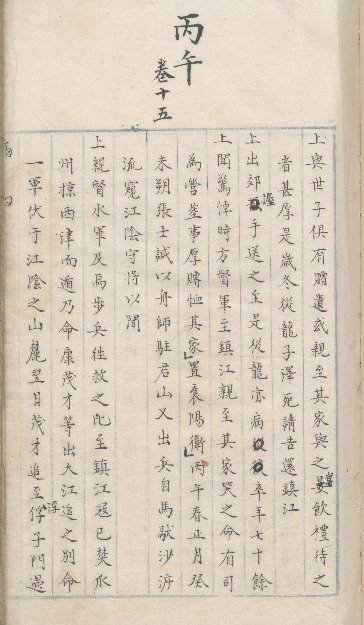 丙午
卷十五
上與世子俱有贈遺或親至其家與之宴飲禮待之
者甚厚是歲冬從龍子澤死請告還鎮江
上出郊握手送之至是從龍亦病卒年七十餘
上聞驚悼時方督軍至鎮江親至其家哭之命有司
為營塟事厚賻恤其家置襄陽衛丙午春正月癸
未朔張士誠以舟師駐君山又出兵自馬馱沙泝
流窺江陰守將以聞
上親督水軍及馬步兵往救之比至鎮江寇已焚瓜
州掠西津而遁乃命康茂才等出大江追之别命
一軍伏于江陰之山麓翌日茂才追至浮子門遇